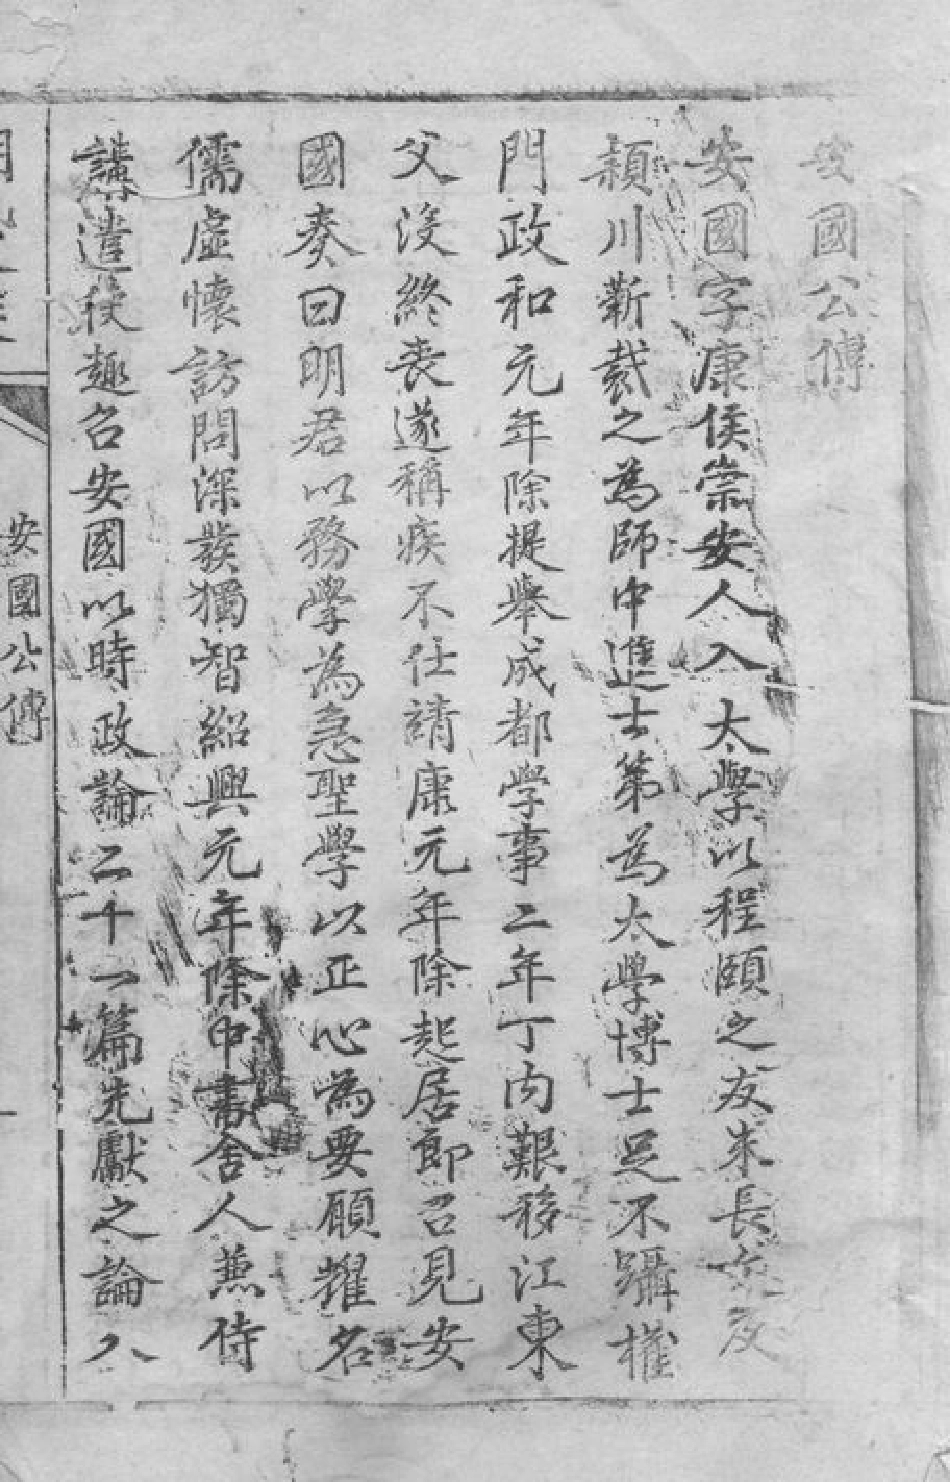 安國公傳
安國字康侯崇安人入太學以程頤之友朱長文及
潁川靳裁之為師中進士第為太學博士足不躡權
門政和元年除提舉成都學事二年丁內艱移江東
父沒終喪遂稱疾不仕請康元年除起居郎召見安
國奏曰明君以務學為急聖學以正心為要願擢名
儒虛懷訪問深發獨智紹興元年除中書舍人兼侍
講遣使趣召安國以時政論二十一篇先獻之論入
安國公傳